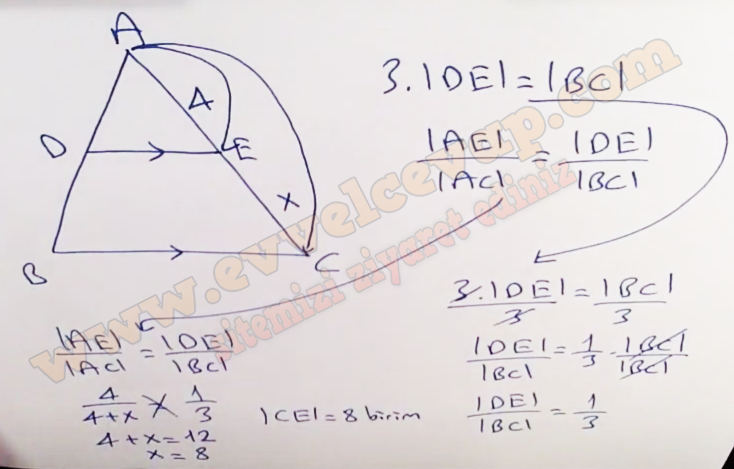 A
D
4
E
x
B
C
3.|DE| = |BC|
|AE|/|AC| = |DE|/|BC|
3.|DE|/3 = |BC|/3
|DE|/|BC| = 1/3 · |BC|/|BC|
|DE|/|BC| = 1/3
|AE|/|AC| = |DE|/|BC|
4/4+x 1/3
4+x=12
x=8
|CE|=8 birim
www.evvelcevap.com
sitemizi ziyaret ediniz